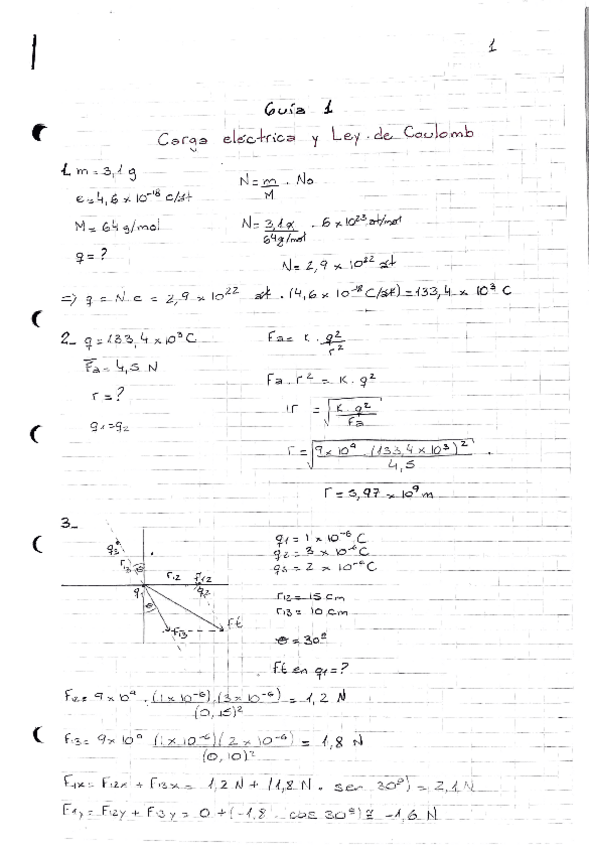 1
Guía 1
Carga eléctrica y Ley de Coulomb
1. m = 3,1 g
e = 4,6 × 10⁻¹⁸ C/at
M = 64 g/mol
q = ?
N = m/M . No
N = 3,1 g/64 g/mol . 6 × 10²³ at/mol
N = 2,9 × 10²² at
=> q = N e = 2,9 × 10²² at . (4,6 × 10⁻¹⁸ C/at) = 133,4 × 10³ C
2_ q = 133,4 × 10³ C
Fa = 4,5 N
r = ?
q1 = q2
Fa = K . q²/r²
Fa . r² = K . q²
r = √(K . q²/Fa)
r = √(9 × 10⁹ . (133,4 × 10³)²/4,5)
r = 5,97 × 10⁹ m
3_
q3
r13
θ
r12
F12
q1
q2
θ
F13
Ft
q1 = 1 × 10⁻⁶ C
q2 = 3 × 10⁻⁶ C
q3 = 2 × 10⁻⁶ C
r12 = 15 cm
r13 = 10 cm
θ = 30º
Ft en q1 = ?
F12 = 9 × 10⁹ . (1 × 10⁻⁶) . (3 × 10⁻⁶)/(0,15)² = 1,2 N
F13 = 9 × 10⁹ (1 × 10⁻⁶)(2 × 10⁻⁶)/(0,10)² = 1,8 N
F1x = F12x + F13x = 1,2 N + (1,8 N . sen 30º) = 2,1 N
F1y = F12y + F13y = 0 + (-1,8 . cos 30º) ≅ -1,6 N